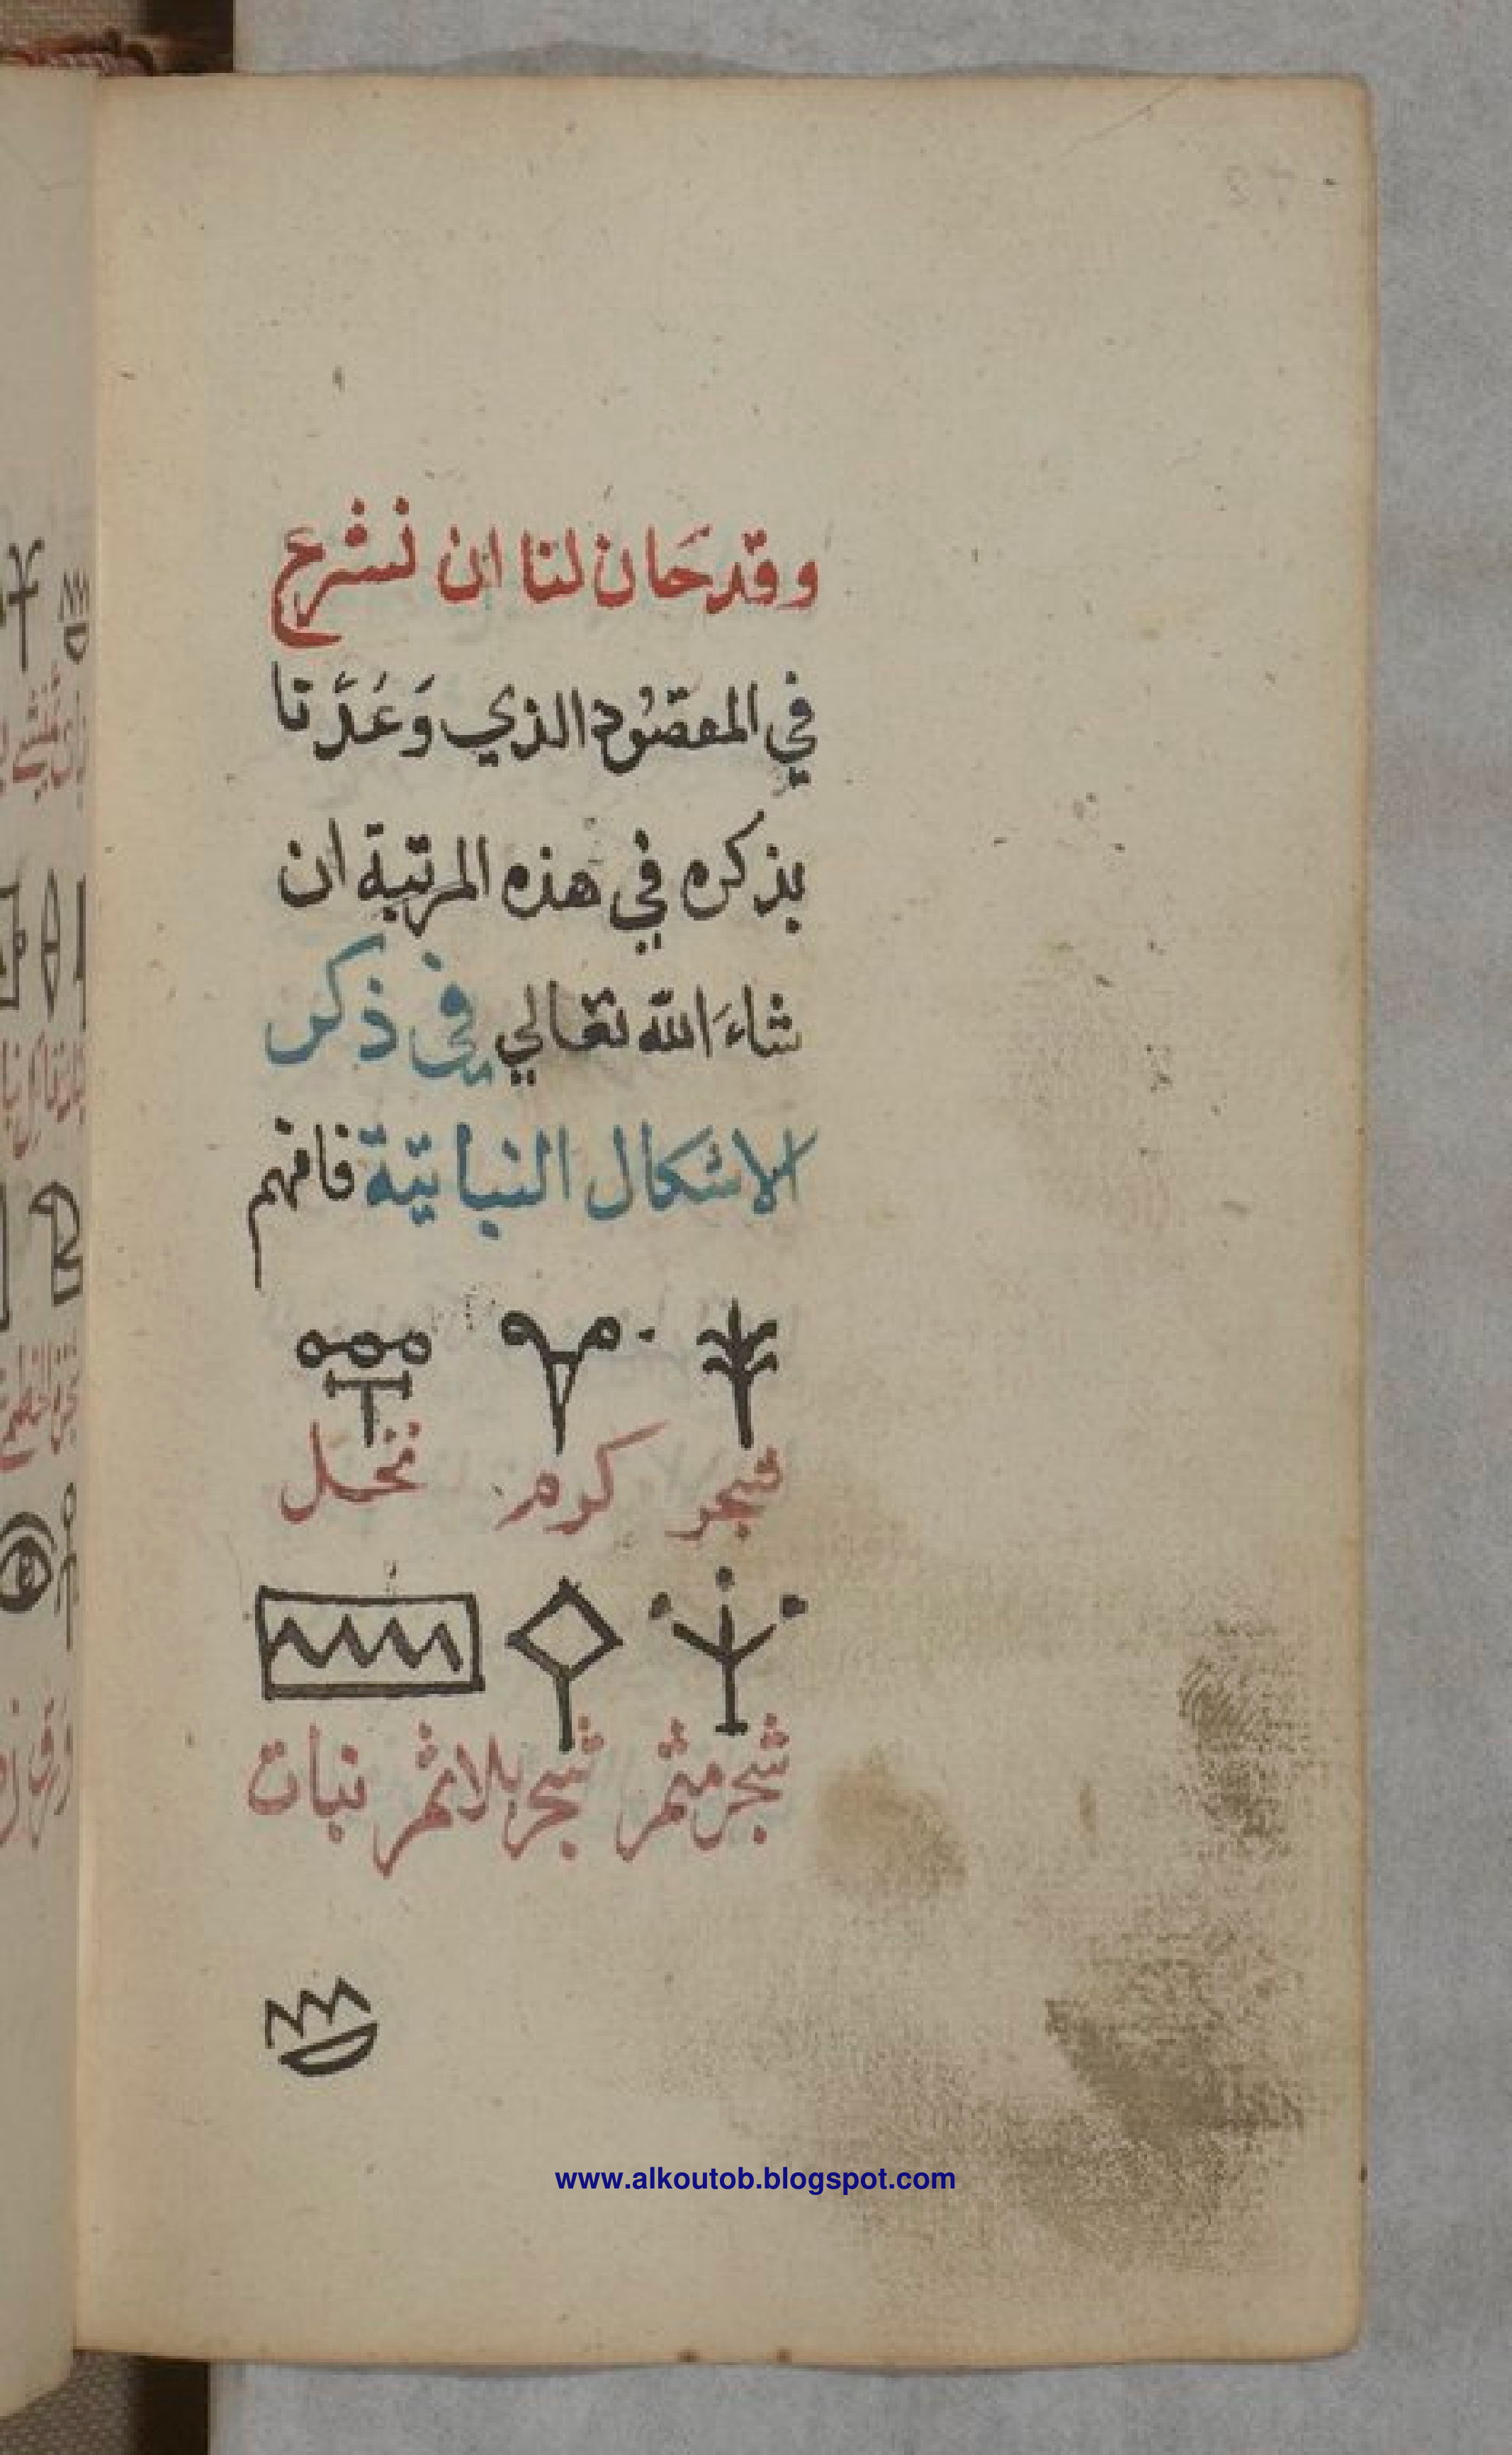 وقد حَان لنا ان نشرع
في المقصُود الذي وَعَدَّنا
بذكره في هذه المرتبة ان
شاءَ الله تعالي في ذكر
الاشكال النباتية فافهم
شجر كرم نخل
شجر مثمر شجر بلا ثمر نبات
www.alkoutob.blogspot.com